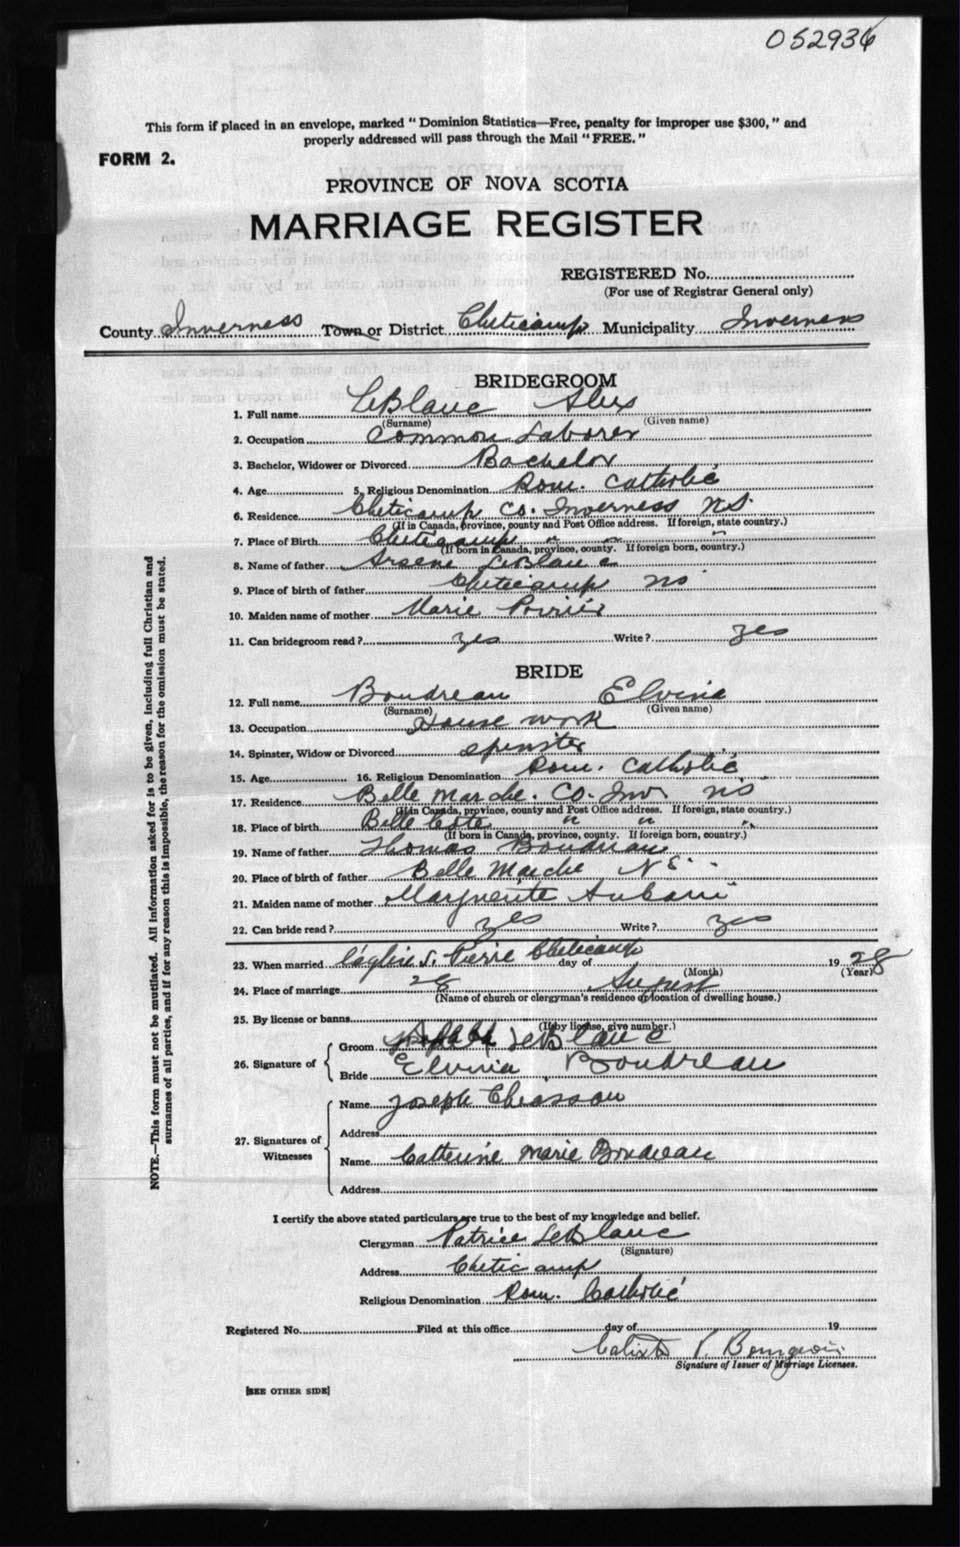 052936
This form if placed in an envelope, marked "Dominion Statistics—Free, penalty for improper use $300," and
properly addressed will pass through the Mail "FREE."
FORM 2.
PROVINCE OF NOVA SCOTIA
MARRIAGE REGISTER
REGISTERED No.
(For use of Registrar General only)
County Inverness Town or District Cheticamp Municipality Inverness
BRIDEGROOM
1. Full name LeBlanc Alex
(Surname) (Given name)
2. Occupation Common Laborer
3. Bachelor, Widower or Divorced Bachelor
4. Age 5. Religious Denomination Rom. Catholic
6. Residence Cheticamp Co. Inverness N.S.
(If in Canada, province, county and Post Office address. If foreign, state country.)
7. Place of Birth Cheticamp " " "
(If born in Canada, province, county. If foreign born, country.)
8. Name of father Arsene LeBlanc
9. Place of birth of father Cheticamp NS
10. Maiden name of mother Marie Poirier
11. Can bridegroom read? yes Write? yes
BRIDE
12. Full name Boudreau Elvina
(Surname) (Given name)
13. Occupation House work
14. Spinster, Widow or Divorced spinster
15. Age 16. Religious Denomination Rom. Catholic
17. Residence Belle Marche. Co. Inv. NS
(If in Canada, province, county and Post Office address. If foreign, state country.)
18. Place of birth Belle Cote " " "
(If born in Canada, province, county. If foreign born, country.)
19. Name of father Thomas Boudreau
20. Place of birth of father Belle Marche N S
21. Maiden name of mother Marguerite
22. Can bride read? yes Write? yes
23. When married L'église S. Pierre Cheticamp day of 19 28
(Month) (Year)
24. Place of marriage 28 August
(Name of church or clergyman's residence or location of dwelling house.)
25. By license or banns
(If by license, give number.)
26. Signature of
Groom LeBlanc
Bride Elvina Boudreau
27. Signatures of Witnesses
Name Joseph Chiasson
Address
Name Catherine Marie Boudreau
Address
I certify the above stated particulars are true to the best of my knowledge and belief.
Clergyman Patrice LeBlanc
(Signature)
Address Cheticamp
Religious Denomination Rom. Catholic
Registered No. Filed at this office day of 19
Calixte P Bourgeois
Signature of Issuer of Marriage Licenses.
[SEE OTHER SIDE]
NOTE.—This form must not be mutilated. All information asked for is to be given, including full Christian and
surnames of all parties, and if for any reason this is impossible, the reason for the omission must be stated.